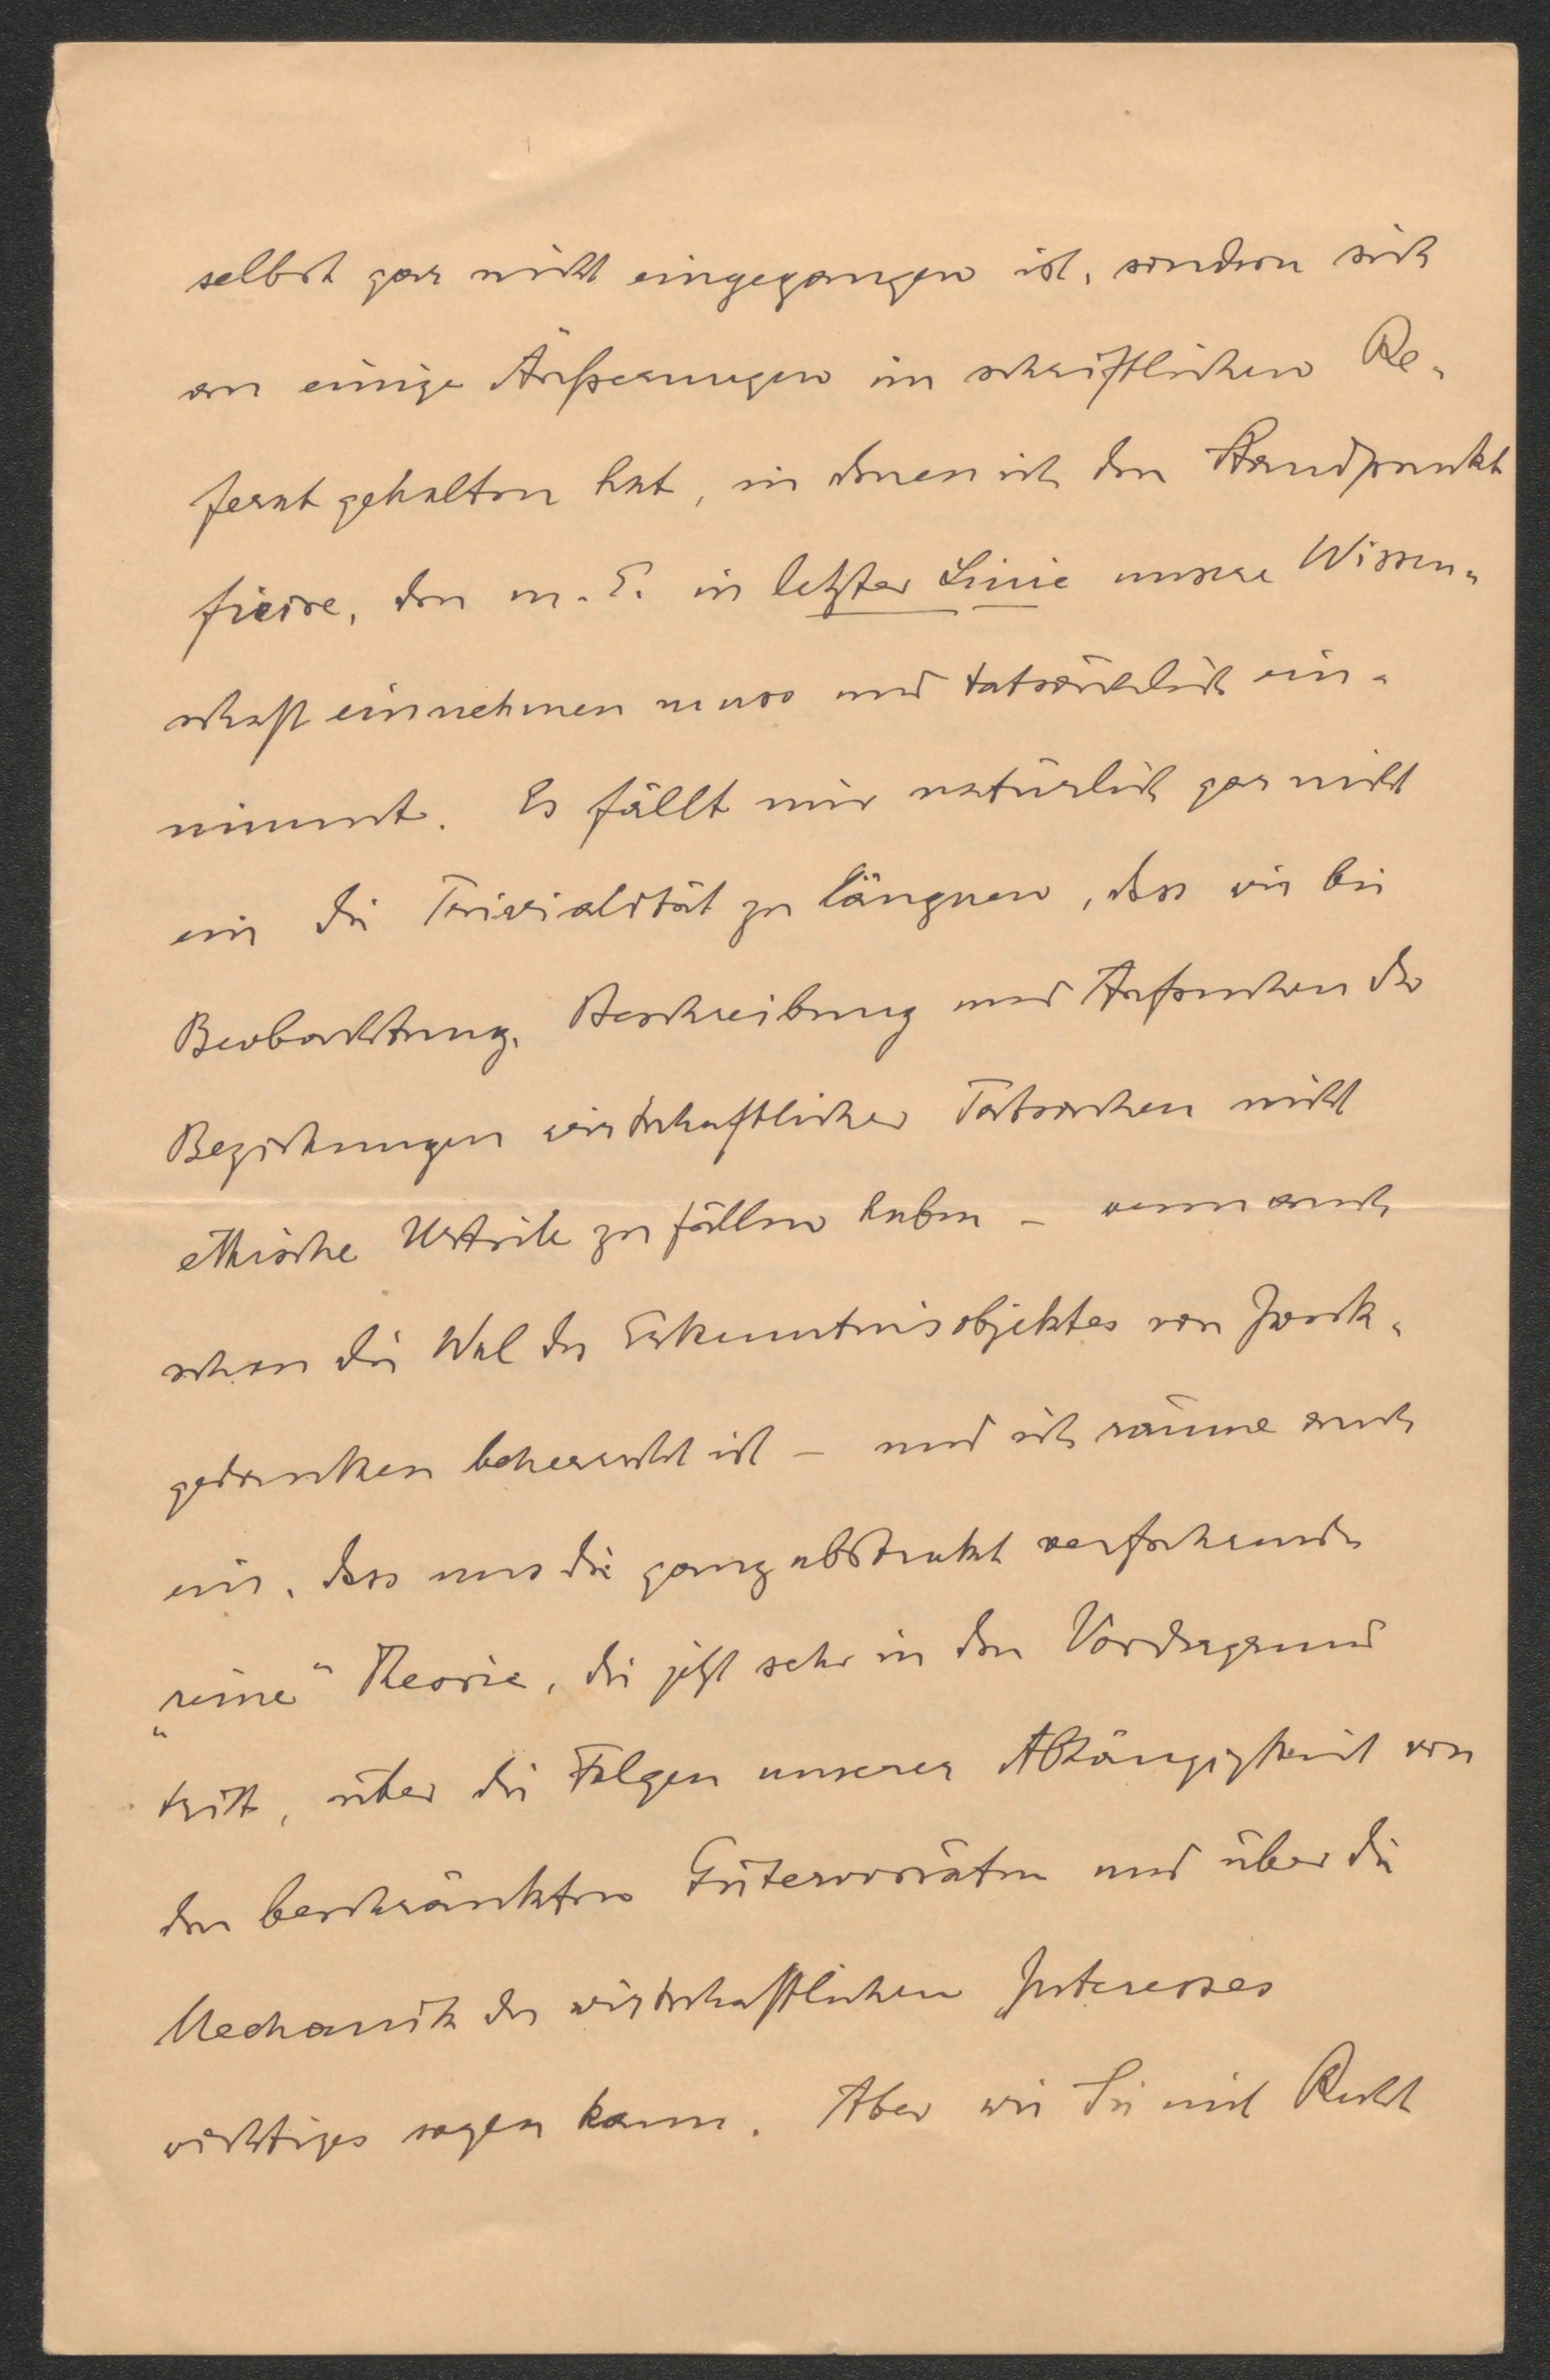 selbst gar nicht eingegangen ist, sondern sich
an einige Äußerungen im schriftlichen Re-
ferat gehalten hat, in denen ich den Standpunkt
fixire, den m. E. in letzter Linie unsere Wissen-
schaft einnehmen muss und tatsächlich ein-
nimmt. Es fällt mir natürlich gar nicht
ein die Trivialität zu läugnen, dass wir bei
Beobachtung, Beschreibung und Aufsuchen der
Beziehungen wirtschaftlicher Tatsachen nicht
ethische Urteile zu fällen haben – wenn auch
schon die Wal des Erkenntnisobjektes von Zweck-
gedanken beherrscht ist – und ich räume auch
ein, dass uns die ganz abstrakt verfahrende
„reine“ Theorie, die jetzt sehr in den Vordergrund
tritt, über die Folgen unserer Abhängigkeit von
den beschränkten Gütervorräten und über die
Mechanik des wirtschaftlichen Interesses
wichtiges sagen kann. Aber wie Sie mit Recht